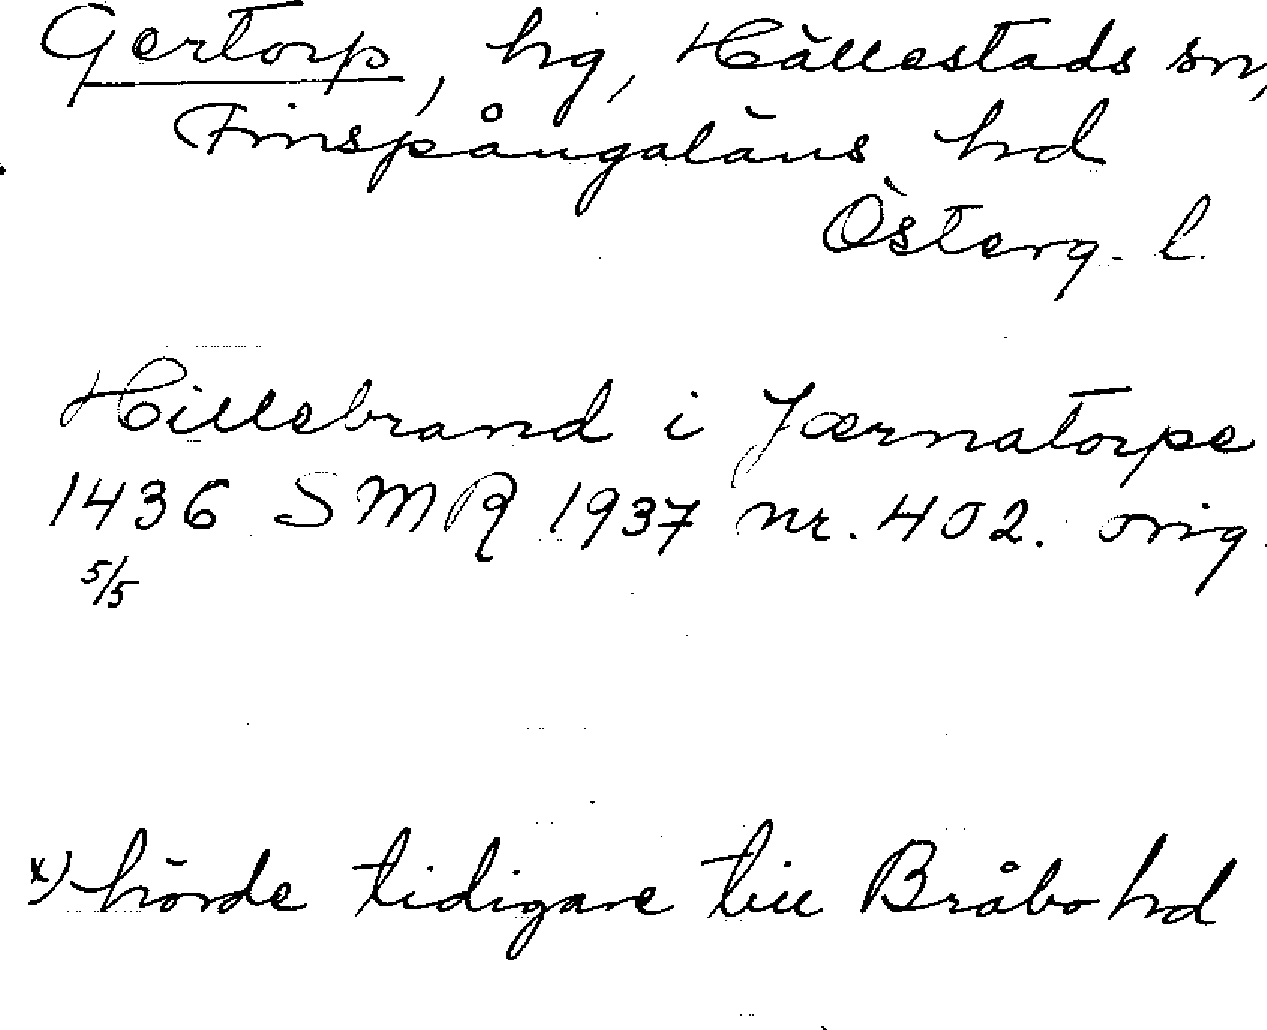 Gertorp, hg, Hällestads sn,
Finspångaläns hd
Österg. l.
Hillebrand i Jærnatorpe
1436 SMR 1937 nr. 402. orig.
5/5
x) hörde tidigare till Bråbo hd